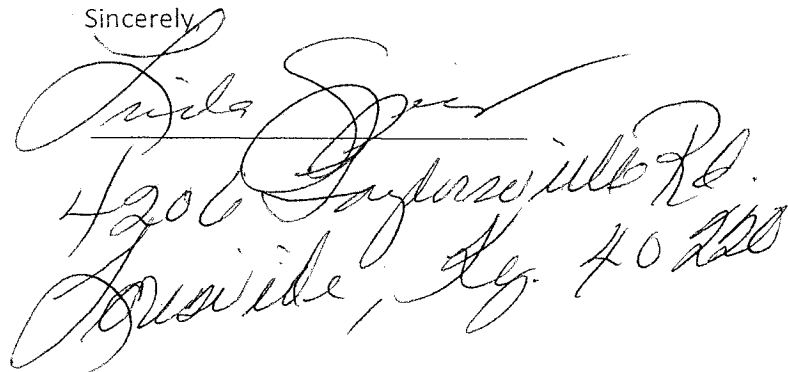 Sincerely,
Linda
4206 Taylorsville Rd.
Louisville, Ky. 40220